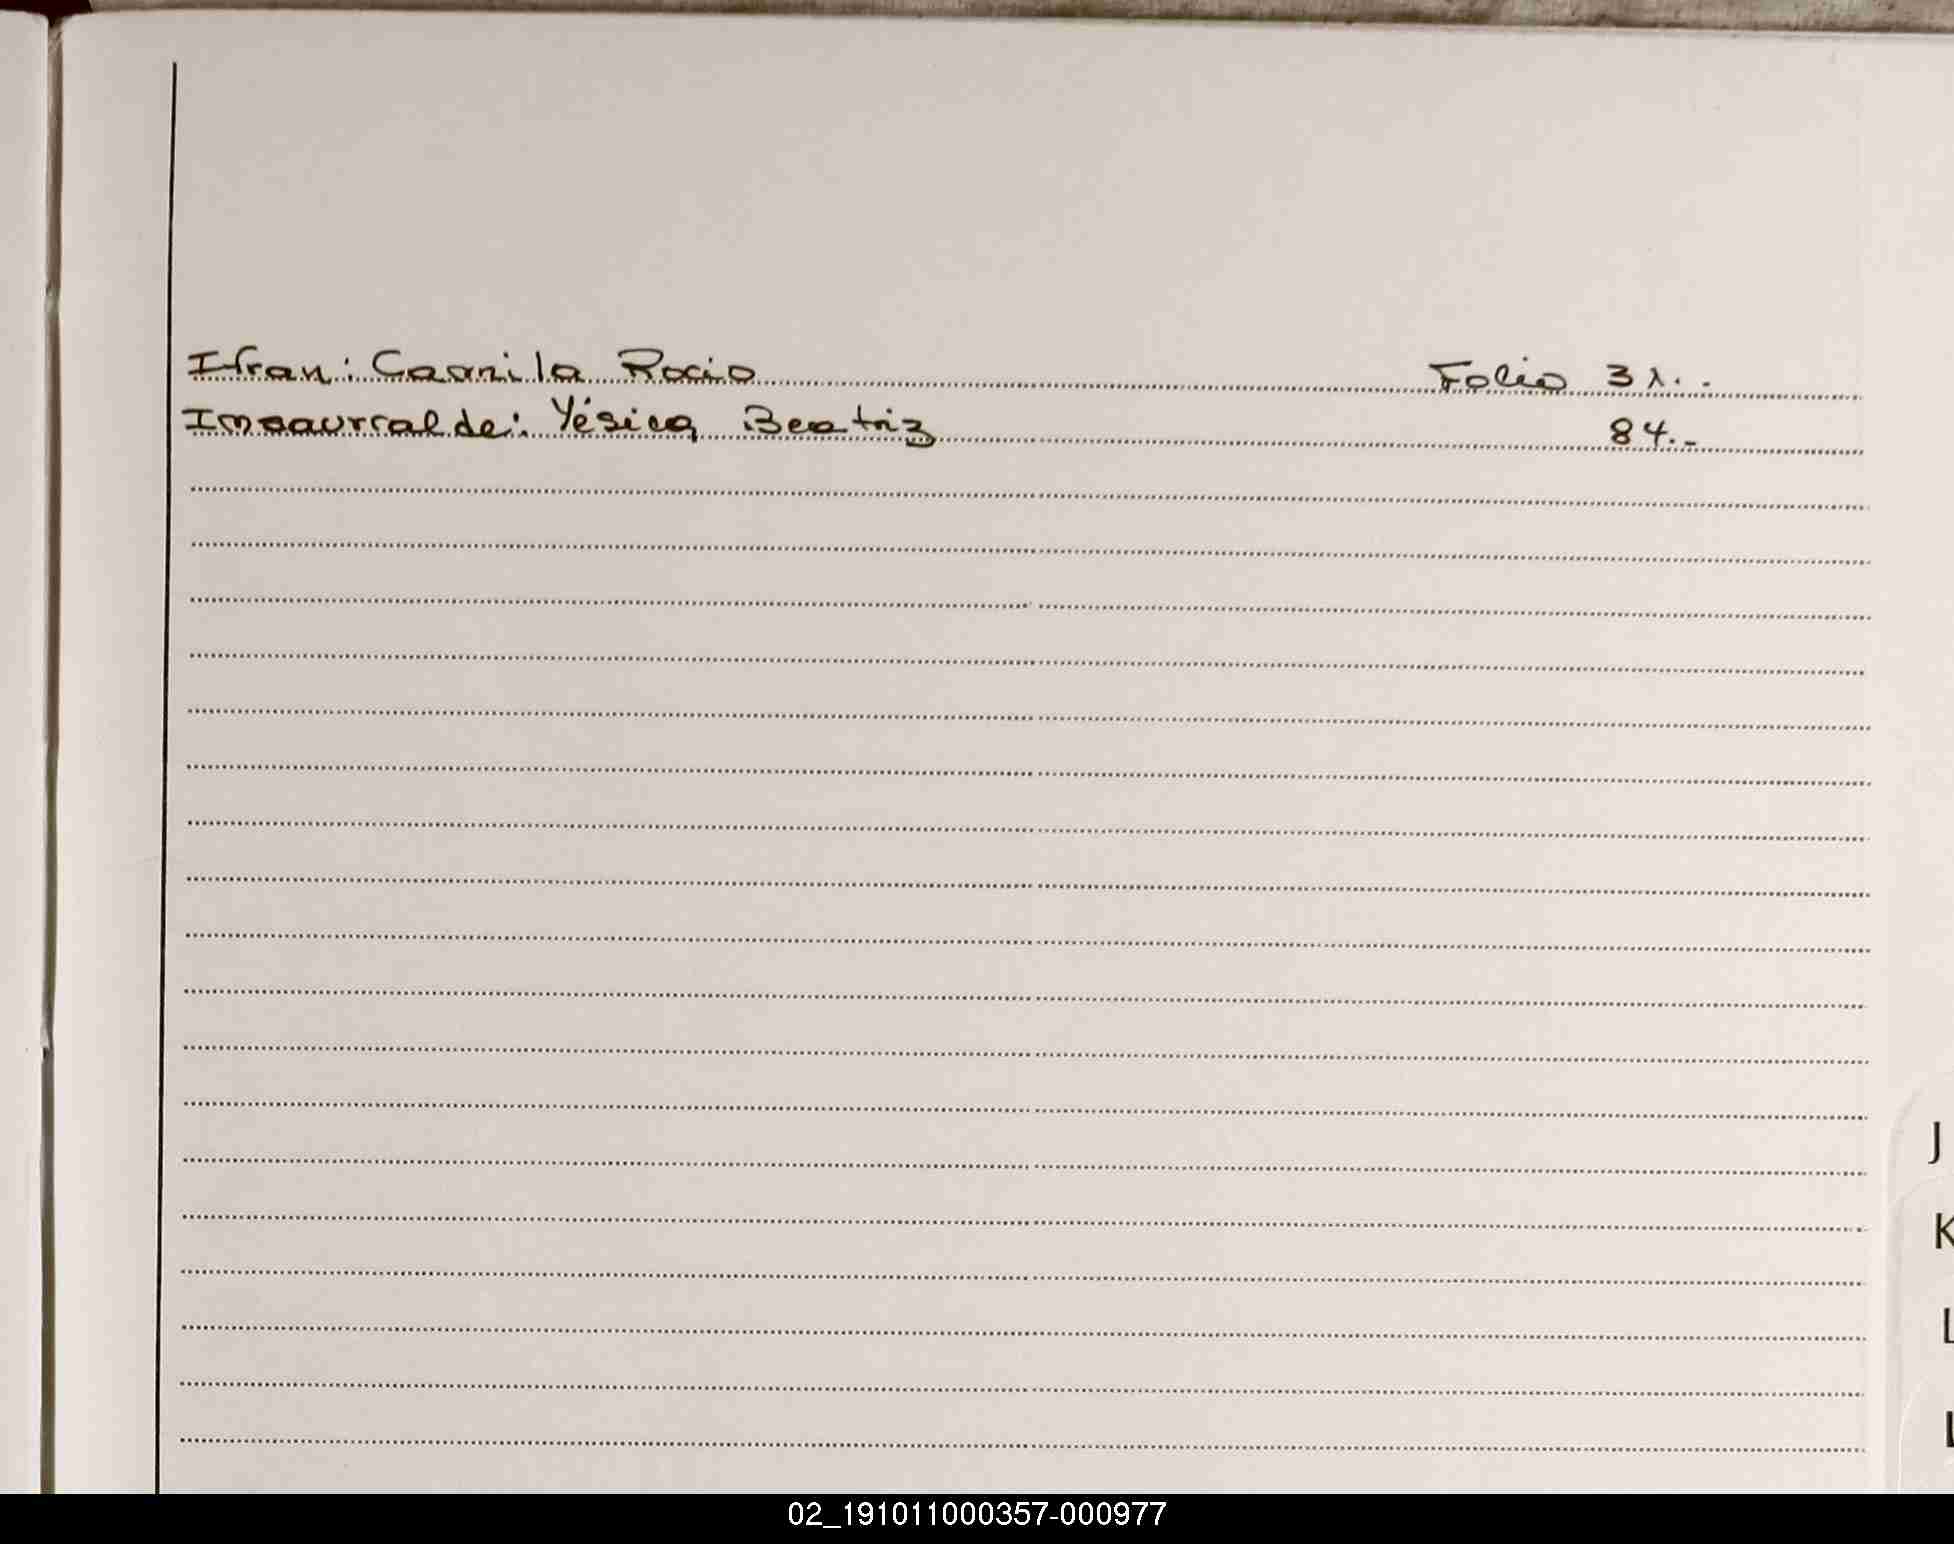 Ifran: Camila Rocio Folio 31.-
Insaurralde: Yésica Beatriz 84.-
J
K
L
02_191011000357-000977